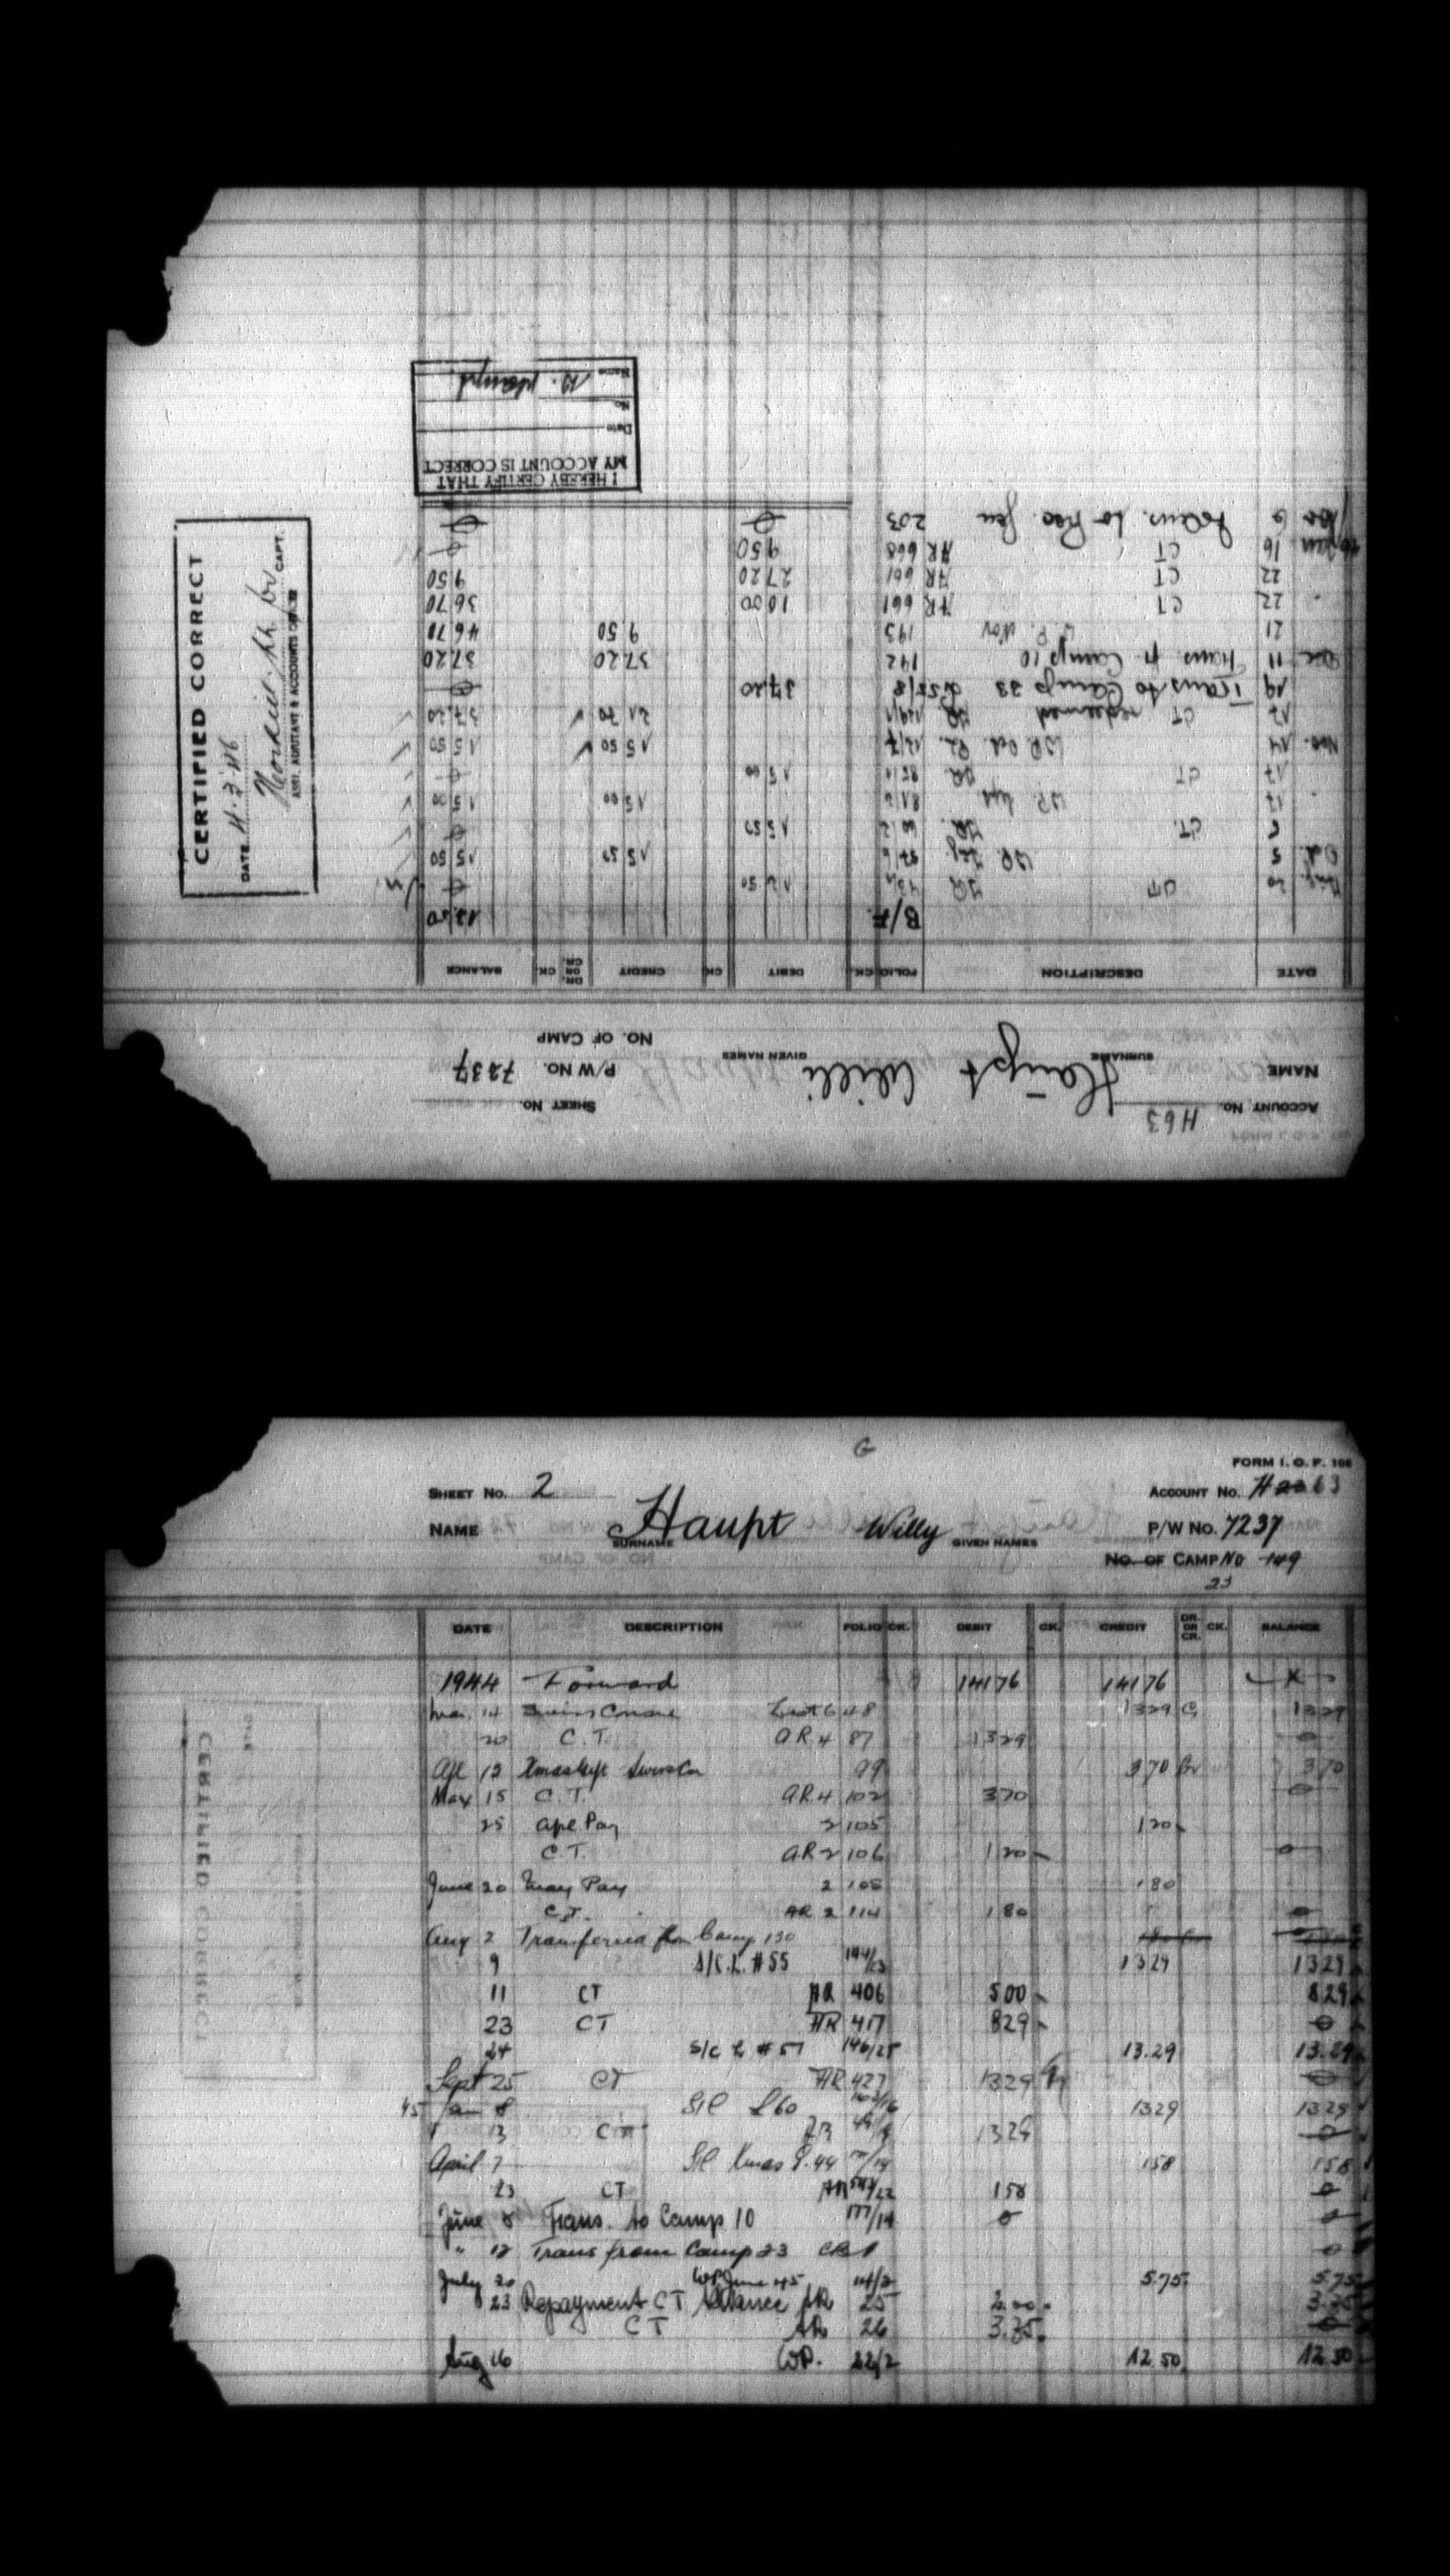 ACCOUNT No. H63 SHEET No.
NAME Haupt Willi P/W No. 7237
SURNAME GIVEN NAMES NO. OF CAMP
DATE DESCRIPTION FOLIO CK. DEBIT CK. CREDIT DR. OR CR. CK. BALANCE
B/F 12.50
Aug. 20 CT AR 12 50 0
Oct. 5 WP. Aug. 15 50 15 50
5 CT. AR. 15 50 0
17 WP. Sept 15 00 15 00
17 CT AR 15 00 0
Nov. 14 WP. Oct. 15 50 15 50
17 CT redeemed AR 21 70 37.20
19 Trans to Camp 33 37.20 0
Dec 11 Trans. fr. Camp 10 142 37.20 37.20
21 W.P. Nov 193 9.50 46 70
22 CT AR 661 10 00 36 70
22 CT AR 661 27 20 9 50
46 Jan 16 CT AR 668 9 50 0
6 Trans. to 203 0 0
I HEREBY CERTIFY THAT
MY ACCOUNT IS CORRECT
Date
No.
Name W. Haupt
CERTIFIED CORRECT
DATE 4.3.46
CAPT.
ASST. ADJUTANT & ACCOUNTS OFFICER
G
FORM I. O. P. 106
SHEET No. 2 ACCOUNT No. H 63
NAME Haupt Willy P/W No. 7237
SURNAME GIVEN NAMES
NO. OF CAMP No 149
23
DATE DESCRIPTION FOLIO CK. DEBIT CK. CREDIT DR. OR CR. CK. BALANCE
1944 Forward 141 76 141 76
Mar. 14 48 13 29 13 29
20 C.T. A.R. 4 87 13 29 0
Apl 12 Xmas Gift 99 3 70 3 70
May 15 C.T. A.R. 4 102 3 70 0
25 Apl. Pay 2 105 1 20
C.T. A.R. 2 106 1 20 0
June 20 May Pay 2 108 1 80
C.T. AR 2 114 1 80 0
Aug 2 Transferred from Camp 130
9 S/C.L. #55 13 29 13 29
11 CT AR 406 5 00 8 29
23 CT AR 417 8 29 0
24 S/C L #57 146/25 13.29 13.29
Sept 25 CT AR 427 13 29 0
45 Jan 8 S/C L60 13 29 13 29
13 CT AR 13 29 0
April 7 S/C Xmas G. 44 1 58 1 58
23 CT AR 1 58 0
June 8 Trans. to Camp 10 177/14 0 0
" 12 Trans from Camp 23 CB 1 0
July 20 WP June 45 5.75 5.75
23 Repayment CT Advance AR 25 2.00 3.75
CT AR 26 3.75 0
Aug 16 WP. 22/2 12.50 12.50